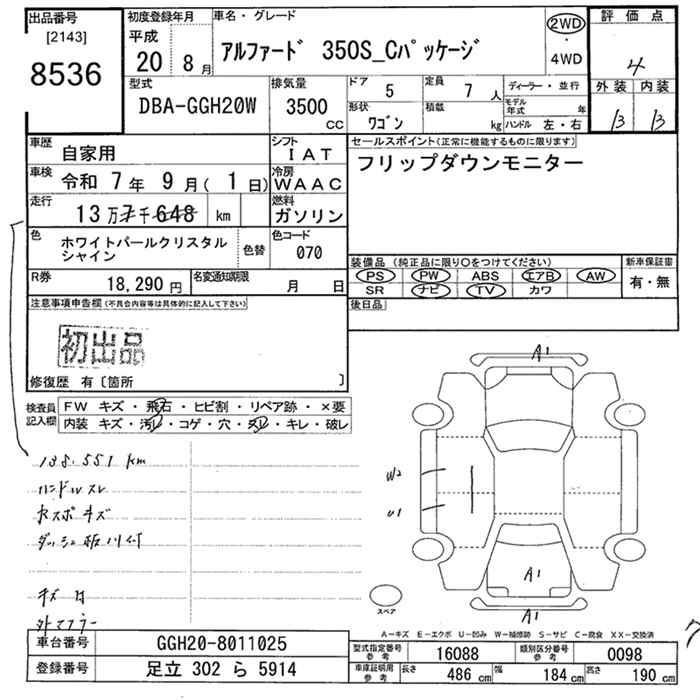 出品番号
[2143]
8536
初度登録年月
平成
20 8月
車名・グレード
アルファード 350S_Cパッケージ
2WD
・
4WD
評価点
4
外装 内装
B B
型式
DBA-GGH20W
排気量
3500
CC
ドア 5
定員 7 人
形状
ワゴン
積載
kg
ディーラー・並行
モデル年式 年
ハンドル 左・右
車歴 自家用
シフト
IAT
車検 令和 7年 9月( 1日)
冷房
WAAC
走行 13万7千648 km
燃料
ガソリン
色 ホワイトパールクリスタルシャイン
色替
色コード
070
R券 18,290円
名変通知期限 月 日
セールスポイント(正常に機能するものに限ります)
フリップダウンモニター
装備品 (純正品に限り○をつけてください)
PS PW ABS エアB AW
SR ナビ TV カワ
新車保証書
有・無
後日品
注意事項申告欄(不具合内容等は具体的に記入して下さい)
初出品
修復歴 有〔箇所 〕
検査員記入欄
FW キズ・飛石・ヒビ割・リペア跡・×要
内装 キズ・汚レ・コゲ・穴・スレ・キレ・破レ
138.551 km
ハンドルスレ
ホスポキズ
キズ凹
外マフラー
A1
W2
U1
A1
A1
スペア
A－キズ E－エクボ U－凹み W－補修跡 S－サビ C－腐食 XX－交換済
7
車台番号 GGH20-8011025
登録番号 足立 302 ら 5914
型式指定番号
参考
16088
類別区分番号
参考
0098
車庫証明用
参考
長さ 486 cm
幅 184 cm
高さ 190 cm